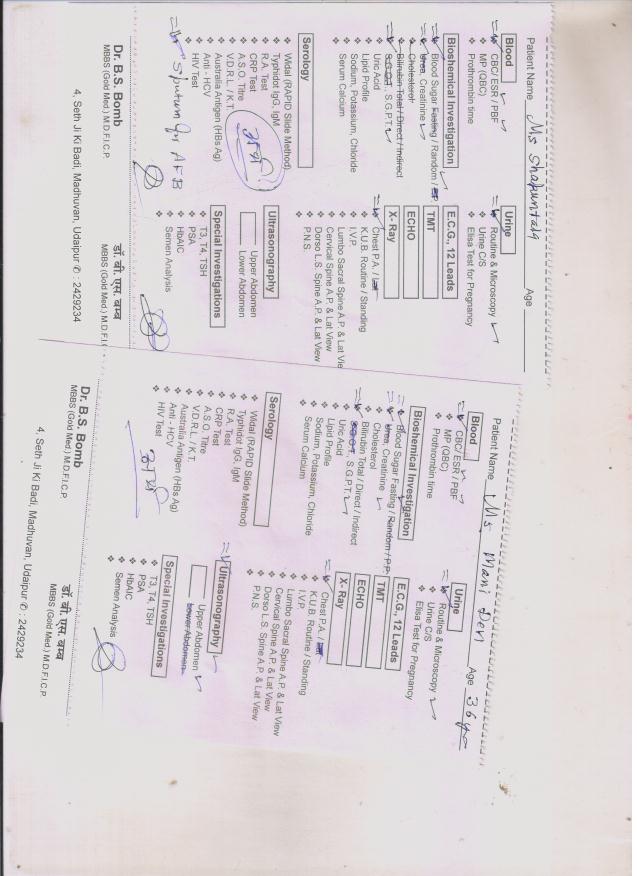 Patient Name Ms Shakuntala Age
Blood
❖ CBC/ ESR / PBF
❖ MP (QBC)
❖ Prothrombin time
Biochemical Investigation
❖ Blood Sugar Fasting / Random /
❖ Urea, Creatinine
❖ Cholesterol
❖ Bilirubin Total / Direct / Indirect
❖ S.G.O.T. S.G.P.T.
❖ Uric Acid
❖ Lipid Profile
❖ Sodium, Potassium, Chloride
❖ Serum Calcium
Serology
❖ Widal (RAPID Slide Method)
❖ Typhidot IgG, IgM
❖ R.A. Test
❖ CRP Test
❖ A.S.O. Titre
❖ V.D.R.L. / K.T.
❖ Australia Antigen (HBs Ag)
❖ Anti - HCV
❖ HIV Test
Sputum for AFB
Urine
❖ Routine & Microscopy
❖ Urine C/S
❖ Elisa Test for Pregnancy
E.C.G., 12 Leads
TMT
ECHO
X- Ray
❖ Chest P.A. /
❖ K.U.B. Routine / Standing
❖ I.V.P.
❖ Lumbo Sacral Spine A.P. & Lat Vie
❖ Cervical Spine A.P. & Lat View
❖ Dorso L.S. Spine A.P. & Lat View
❖ P.N.S.
Ultrasonography
Upper Abdomen
Lower Abdomen
Special Investigations
❖ T3, T4, TSH
❖ PSA
❖ HbAIC
❖ Semen Analysis
Dr. B.S. Bomb
MBBS (Gold Med.) M.D.F.I.C.P.
डॉ. बी. एस. बम्ब
MBBS (Gold Med.) M.D.F.I.C
4, Seth Ji Ki Badi, Madhuvan, Udaipur ✆ : 2429234
Patient Name Ms Mani Devi Age 36 yr
Blood
❖ CBC/ ESR / PBF
❖ MP (QBC)
❖ Prothrombin time
Biochemical Investigation
❖ Blood Sugar Fasting / Random / P.P.
❖ Urea, Creatinine
❖ Cholesterol
❖ Bilirubin Total / Direct / Indirect
❖ S.G.O.T. S.G.P.T.
❖ Uric Acid
❖ Lipid Profile
❖ Sodium, Potassium, Chloride
❖ Serum Calcium
Serology
❖ Widal (RAPID Slide Method)
❖ Typhidot IgG, IgM
❖ R.A. Test
❖ CRP Test
❖ A.S.O. Titre
❖ V.D.R.L. / K.T.
❖ Australia Antigen (HBs Ag)
❖ Anti - HCV
❖ HIV Test
Urine
❖ Routine & Microscopy
❖ Urine C/S
❖ Elisa Test for Pregnancy
E.C.G., 12 Leads
TMT
ECHO
X- Ray
❖ Chest P.A. /
❖ K.U.B. Routine / Standing
❖ I.V.P.
❖ Lumbo Sacral Spine A.P. & Lat View
❖ Cervical Spine A.P. & Lat View
❖ Dorso L.S. Spine A.P. & Lat View
❖ P.N.S.
Ultrasonography
Upper Abdomen
Lower Abdomen
Special Investigations
❖ T3, T4, TSH
❖ PSA
❖ HbAIC
❖ Semen Analysis
Dr. B.S. Bomb
MBBS (Gold Med.) M.D.F.I.C.P.
डॉ. बी. एस. बम्ब
MBBS (Gold Med.) M.D.F.I.C.P.
4, Seth Ji Ki Badi, Madhuvan, Udaipur ✆ : 2429234